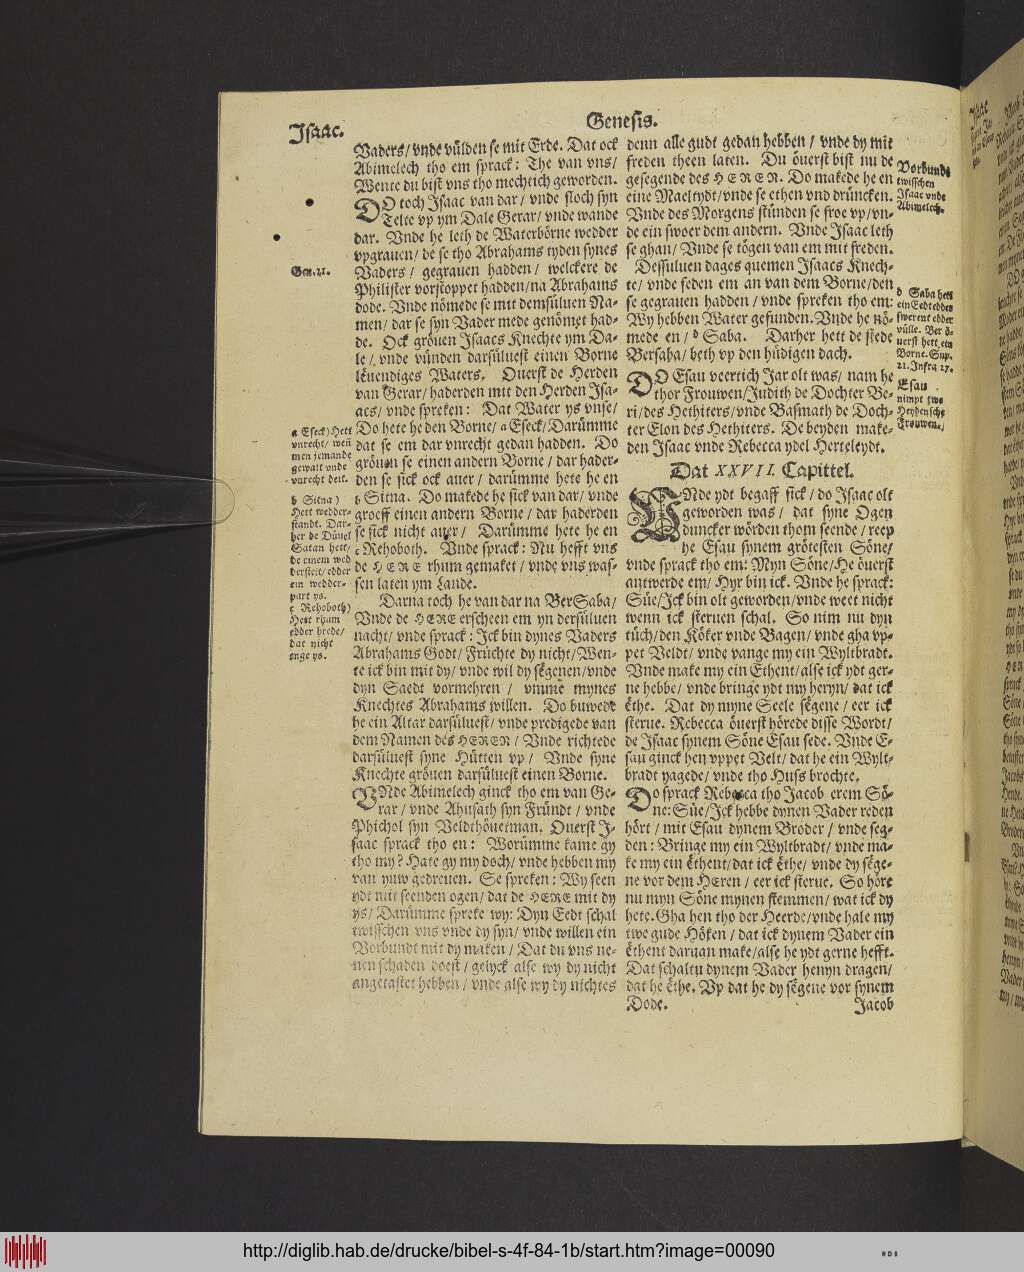 Isaac.
Genesis.
Vaders/ vnde vülden se mit Erde. Dat ock
Abimelech tho em sprack: The van vns/
Wente du bist vns tho mechtich geworden.
DO toch Isaac van dar/ vnde sloch syn
Telte vp ym Dale Gerar/ vnde wande
dar. Vnde he leth de Waterbörne wedder
vpgrauen/ de se tho Abrahams tyden synes
Vaders/ gegrauen hadden/ welckere de
Philister vorstoppet hadden/ na Abrahams
dode. Vnde nömede se mit demsüluen Na-
men/ dar se syn Vader mede genömet had-
de. Ock gröuen Isaacs Knechte ym Da-
le/ vnde vünden darsüluest einen Borne
lëuendiges Waters. Ouerst de Herden
van Gerar/ haderden mit den Herden Isa-
acs/ vnde spreken: Dat Water ys vnse/
Do hete he den Borne/ a Eseck/ Darümme
dat se em dar vnrecht gedan hadden. Do
gröuen se einen andern Borne/ dar hader-
den se sick ock auer/ darümme hete he en
b Sitna. Do makede he sick van dar/ vnde
groeff einen andern Borne/ dar haderden
se sick nicht auer/ Darümme hete he en
c Rehoboth. Vnde sprack: Nu hefft vns
de HERE rhum gemaket/ vnde vns was-
sen laten ym Lande.
Darna toch he van dar na BerSaba/
Vnde de HERE erscheen em yn dersüluen
nacht/ vnde sprack: Ick bin dynes Vaders
Abrahams Godt/ Früchte dy nicht/ Wen-
te ick bin mit dy/ vnde wil dy sëgenen/ vnde
dyn Saedt vormehren/ vmme mynes
Knechtes Abrahams willen. Do buwede
he ein Altar darsüluest/ vnde predigede van
dem Namen des HEREN/ Vnde richtede
darsüluest syne Hütten vp/ Vnde syne
Knechte gröuen darsüluest einen Borne.
VNde Abimelech ginck tho em van Ge-
rar/ vnde Ahusath syn Fründt/ vnde
Phichol syn Veldthöuetman. Ouerst I-
saac sprack tho en: Worümme kame gy
tho my? Hate gy my doch/ vnde hebben my
van yuw gedreuen. Se spreken: Wy seen
ydt mit seenden ogen/ dat de HERE mit dy
ys/ Darümme spreke wy: Dyn Eedt schal
twisschen vns vnde dy syn/ vnde willen ein
Vorbundt mit dy maken/ Dat du vns ne-
nen schaden doest/ gelyck alse wy dy nicht
angetastet hebben/ vnde alse wy dy nichtes
Gen. 21.
a Eseck) Hett
vnrecht/ weñ
men jemande
gewalt vnde
vnrecht deit.
b Sitna)
Hett wedder-
standt. Dar-
her de Düuel
Satan hett/
de einem wed
dersteit/ edder
ein wedder-
part ys.
c Rehoboth)
Hett rhum
edder brede/
dat nicht
enge ys.
denn alle gudt gedan hebben/ vnde dy mit
freden theen laten. Du öuerst bist nu de
gesegende des HEREN. Do makede he en
eine Maeltydt/ vnde se ethen vnd drüncken.
Vnde des Morgens stünden se froe vp/ vn-
de ein swoer dem andern. Vnde Isaac leth
se ghan/ Vnde se tögen van em mit freden.
Dessuluen dages quemen Isaacs Knech-
te/ vnde seden em an van dem Borne/ den
se gegrauen hadden/ vnde spreken tho em:
Wy hebben Water gefunden. Vnde he nö-
mede en/ d Saba. Darher hett de stede
Bersaba/ beth vp den hüdigen dach.
DO Esau veertich Jar olt was/ nam he
thor Frouwen/ Judith de Dochter Be-
ri/ des Hethiters/ vnde Basmath de Doch-
ter Elon des Hethiters. De beyden make-
den Isaac vnde Rebecca ydel Herteleydt.
Dat XXVII. Capittel.
VNde ydt begaff sick/ do Isaac olt
geworden was/ dat syne Ogen
duncker wörden thom seende/ reep
he Esau synem grötesten Söne/
vnde sprack tho em: Myn Söne/ He öuerst
antwerde em/ Hyr bin ick. Vnde he sprack:
Süe/ Ick bin olt geworden/ vnde weet nicht
wenn ick steruen schal. So nim nu dyn
tüch/ den Köker vnde Bagen/ vnde gha vp-
pet Veldt/ vnde vange my ein Wyltbradt.
Vnde make my ein Ethent/ alse ick ydt ger-
ne hebbe/ vnde bringe ydt my heryn/ dat ick
ëthe. Dat dy myne Seele sëgene/ eer ick
sterue. Rebecca öuerst hörede disse Wordt/
de Isaac synem Söne Esau sede. Vnde E-
sau ginck hen vppet Velt/ dat he ein Wylt-
bradt yagede/ vnde tho Huss brochte.
Do sprack Rebecca tho Jacob erem Sö-
ne: Süe/ Ick hebbe dynen Vader reden
hört/ mit Esau dynem Broder/ vnde seg-
den: Bringe my ein Wyltbradt/ vnde ma-
ke my ein ëthent/ dat ick ëthe/ vnde dy sëge-
ne vor dem HEren/ eer ick sterue. So höre
nu myn Söne mynen stemmen/ wat ick dy
hete. Gha hen tho der Heerde/ vnde hale my
twe gude Höken/ dat ick dynem Vader ein
ëthent daruan make/ alse he ydt gerne hefft.
Dat schaltu dynem Vader henyn dragen/
dat he ëthe. Vp dat he dy sëgene vor synem
Dode.
Jacob
Vorbundt
twisschen
Isaac vnde
Abimelech.
d Saba hett
ein Eedt edder
swerent edder
vülle. Ber ö-
uerst hett ein
Borne. Sup.
21. Infra 27.
Esau
nimpt two
Heydensche
Frouwen.
http://diglib.hab.de/drucke/bibel-s-4f-84-1b/start.htm?image=00090